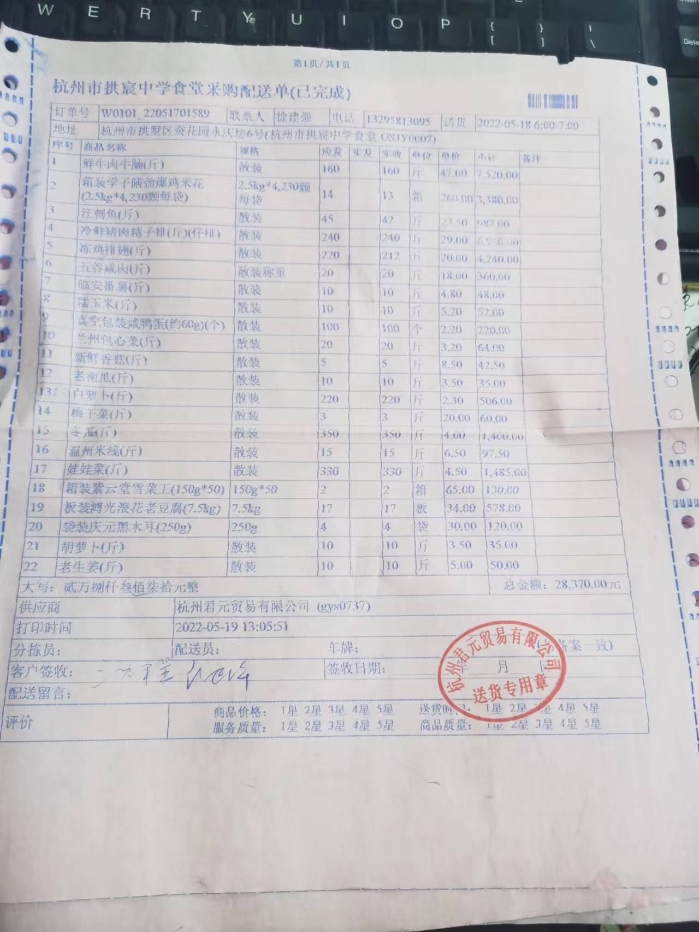 Q W E R T Y U I O P
Delete
第1页/共1页
杭州市拱宸中学食堂采购配送单(已完成)
订单号 W0101_22051701589 联系人 徐建强 电话 13295813095 送货 2022-05-18 6:00-7:00
地址 杭州市拱墅区葵花园永庆坊6号(杭州市拱宸中学食堂
序号 商品名称 规格 应发 实发 实收 单位 单价 小计 备注
1 鲜牛肉牛腩(斤) 散装 160 160 斤 47.00 7,520.00
2 箱装学子 劲爆鸡米花(2.5kg*4,230颗每袋) 2.5kg*4,230颗每袋 14 13 箱 260.00 3,380.00
3 汪刺鱼(斤) 散装 45 42 斤 23.50 987.00
4 冷鲜猪肉精子排(斤)(仔排) 散装 240 240 斤 29.00
5 冻鸡排翅(斤) 散装 220 212 斤 20.00 4,240.00
6 五谷咸肉(斤) 散装称重 20 20 斤 18.00 360.00
7 临安番薯(斤) 散装 10 10 斤 4.80 48.00
8 糯玉米(斤) 散装 10 10 斤 5.20 52.00
9 真空包装咸鸭蛋(约60g)(个) 散装 100 100 个 2.20 220.00
10 兰州包心菜(斤) 散装 20 20 斤 3.20 64.00
11 新鲜香菇(斤) 散装 5 5 斤 8.50 42.50
12 老南瓜(斤) 散装 10 10 斤 3.50 35.00
13 白萝卜(斤) 散装 220 220 斤 2.30 506.00
14 梅干菜(斤) 散装 3 3 斤 20.00 60.00
15 冬瓜(斤) 散装 350 350 斤 4.00 1,400.00
16 温州米线(斤) 散装 15 15 斤 6.50 97.50
17 娃娃菜(斤) 散装 330 330 斤 4.50 1,485.00
18 箱装紫云堂雪菜王(150g*50) 150g*50 2 2 箱 65.00 130.00
19 板装鳟光浪花老豆腐(7.5kg) 7.5kg 17 17 板 34.00 578.00
20 袋装庆元黑木耳(250g) 250g 4 4 袋 30.00 120.00
21 胡萝卜(斤) 散装 10 10 斤 3.50 35.00
22 老生姜(斤) 散装 10 10 斤 5.00 50.00
大写: 贰万捌仟叁佰柒拾元整 总金额: 28,370.00元
供应商 杭州君元贸易有限公司 (gys0737)
打印时间 2022-05-19 13:05:51
分拣员: 配送员: 车牌: 备案一致)
客户签收: 签收日期: 月
杭州君元贸易有限公司
送货专用章
配送留言:
评价 商品价格: 1星 2星 3星 4星 5星 1星 2星 3星 4星 5星
服务质量: 1星 2星 3星 4星 5星 商品质量: 1星 2星 3星 4星 5星